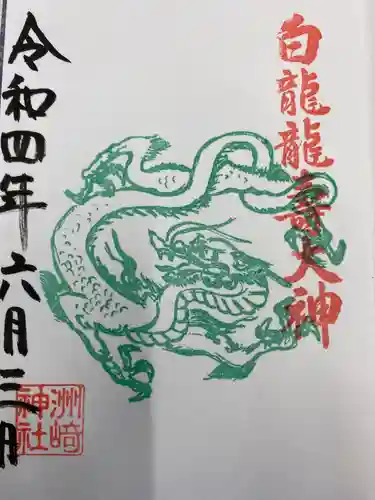 白龍龍壽大神
令和四年六月三日
洲崎
神社